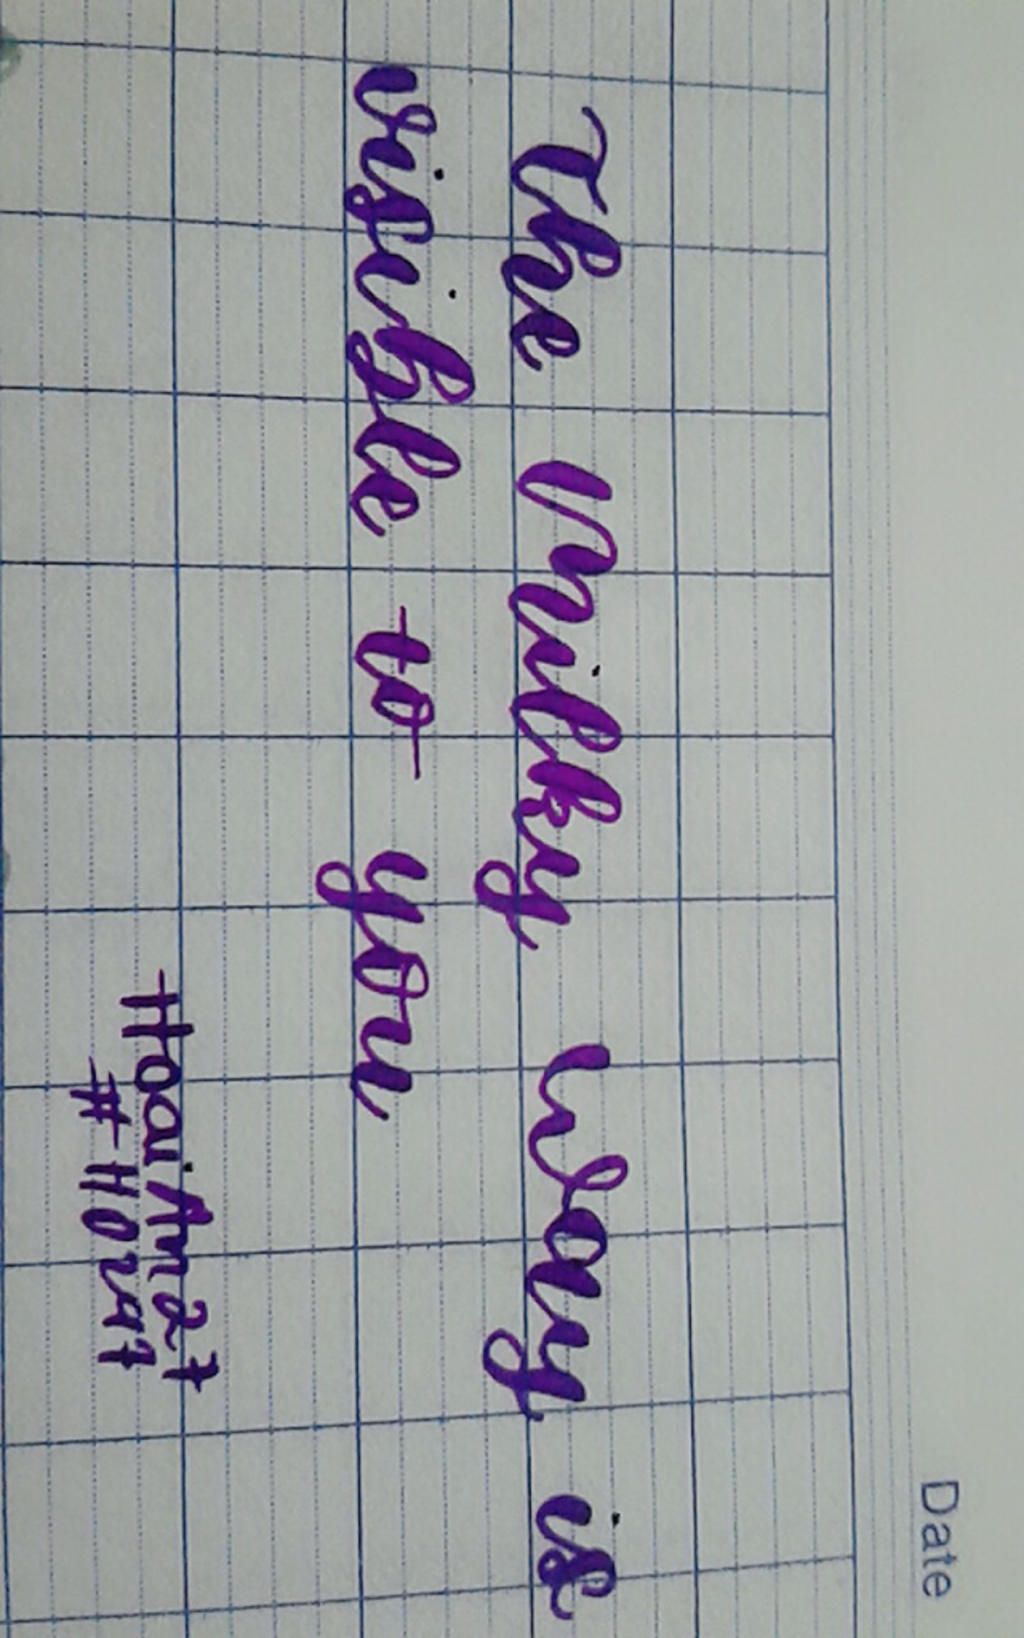 Date
The Milky Way is
visible to you
HoaiAn27
#HOZA7